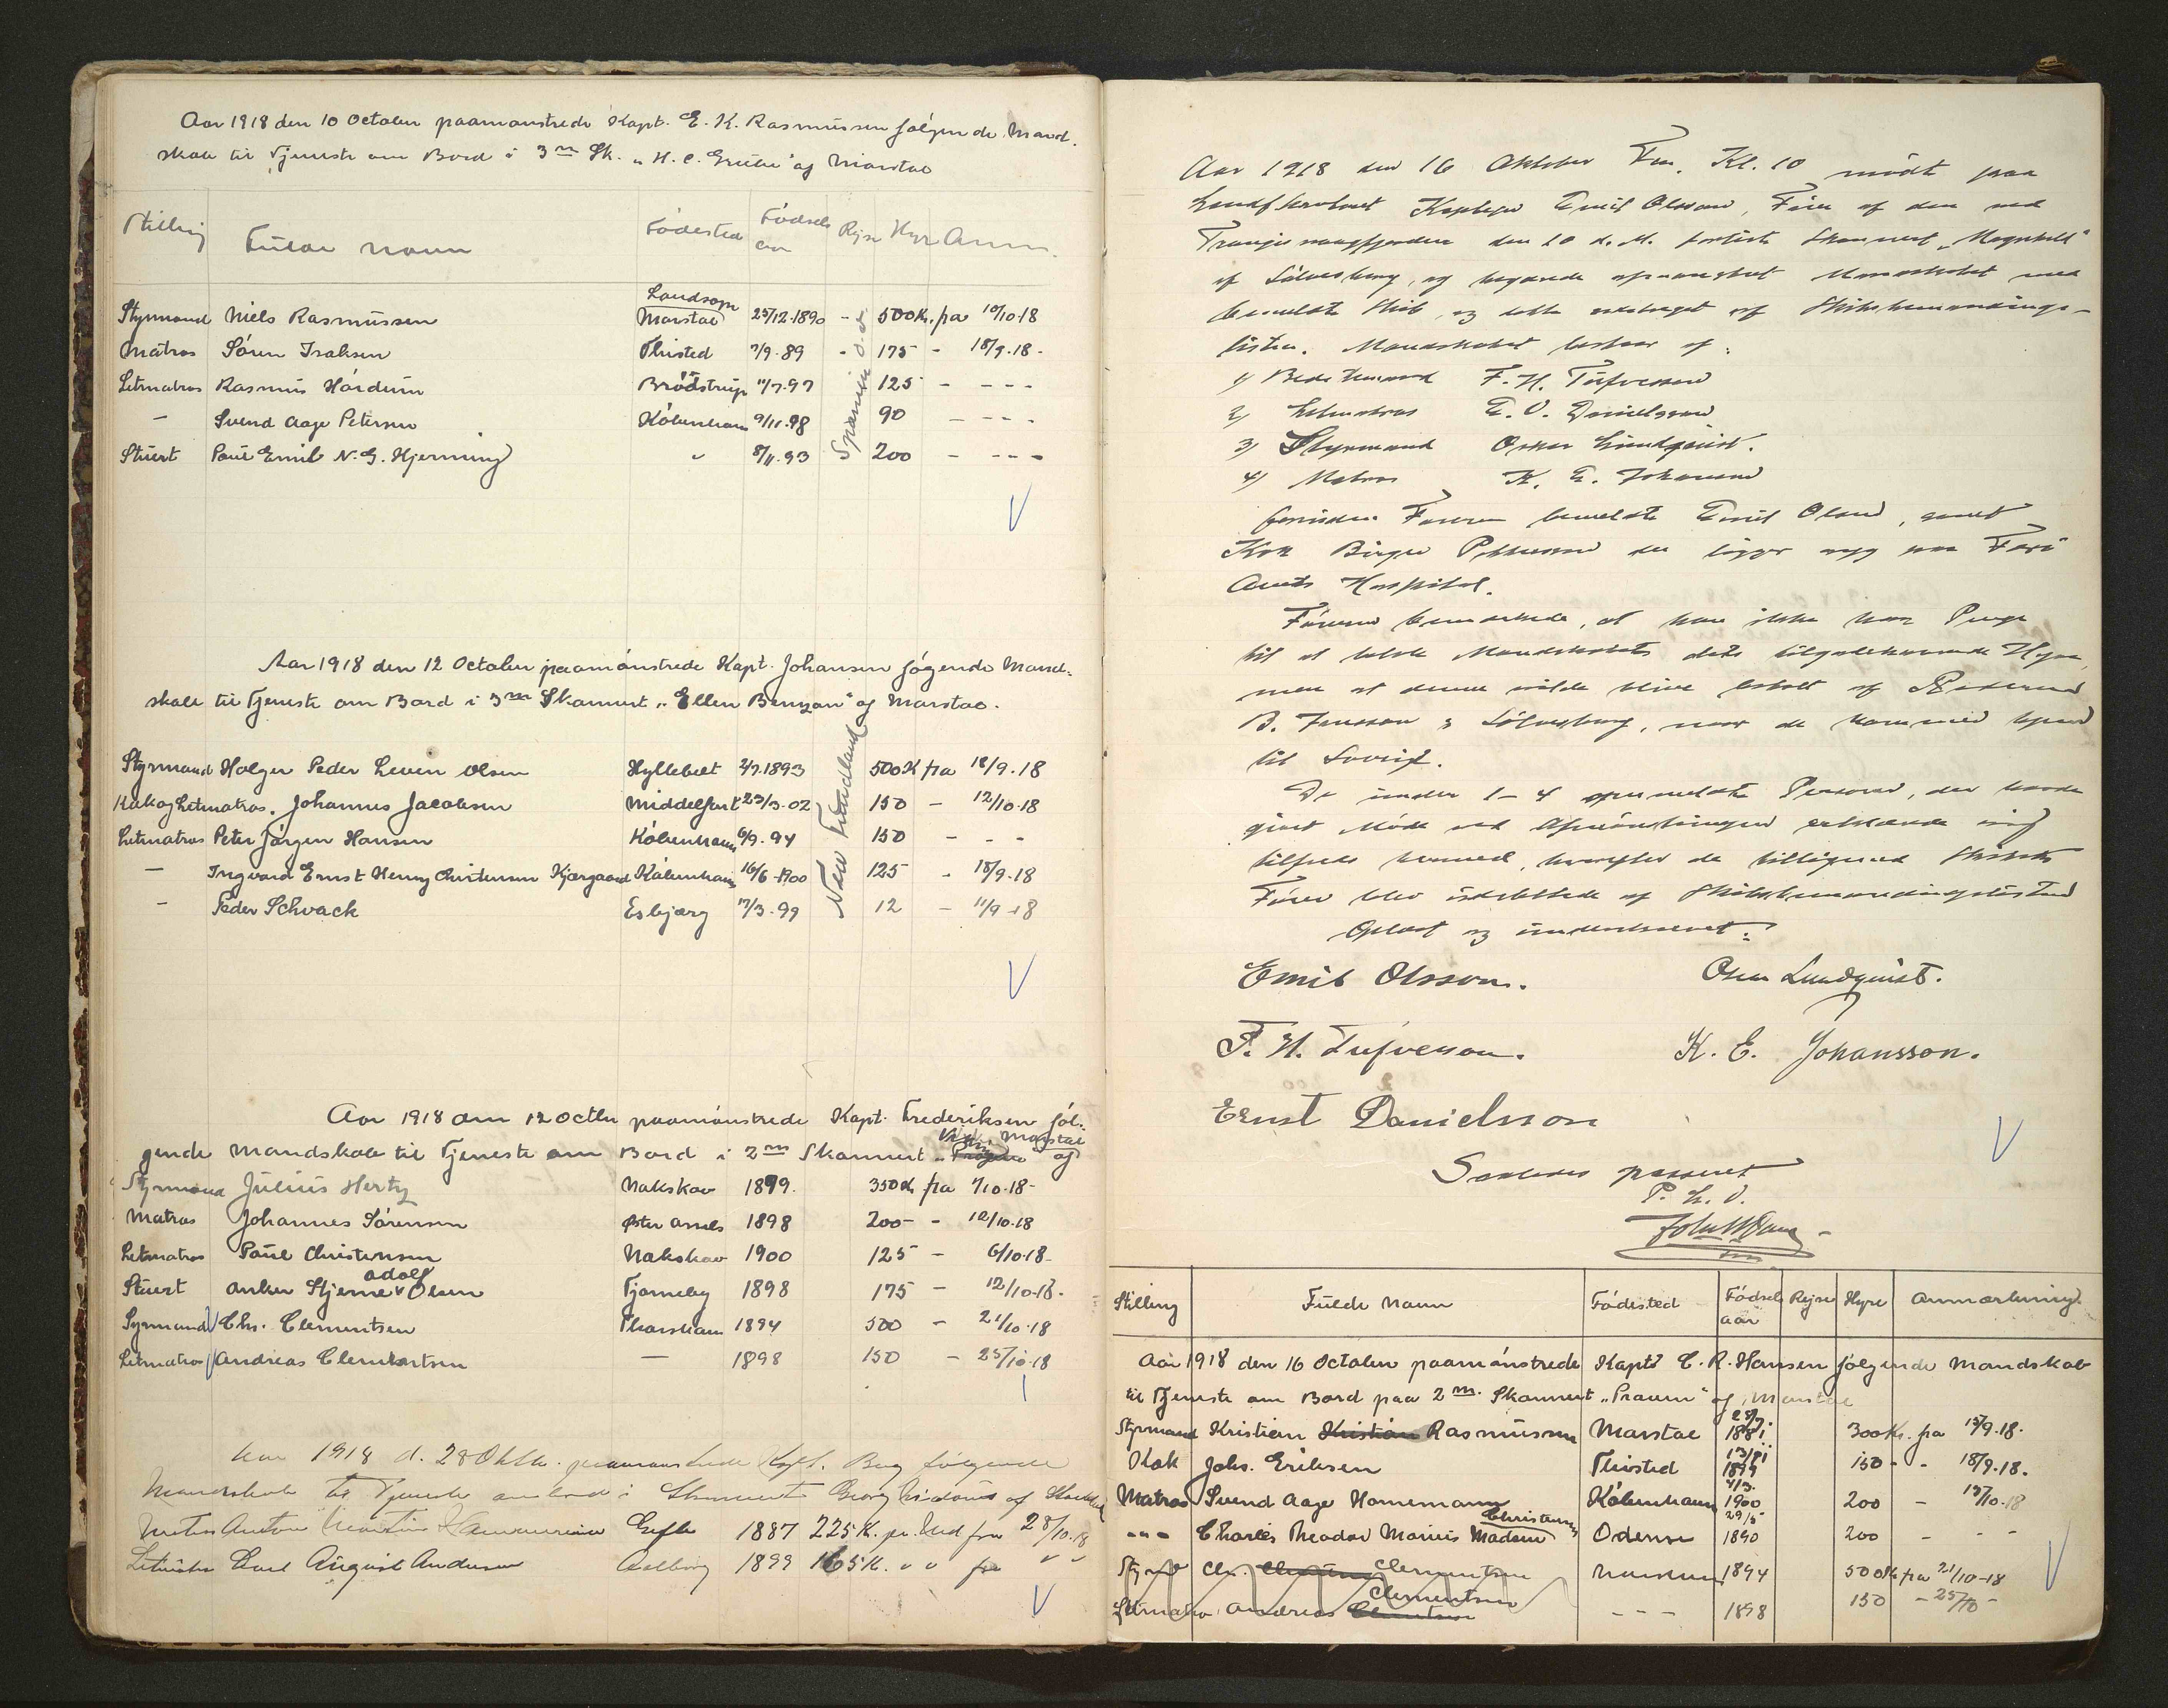 Aar 1918 den 10 October paamönstrede Kapt. E. K. Rasmussen følgende Mand.
skab til Tjeneste om Bord i 3 m Sk. "H. C. Grube" af Marstal
Stilling Fulde Navn Fødested Fødsels aar Rejse Hyre Anm.
Styrmand Niels Rasmussen Landsogn Marstal 25/12.1890 500 Kr. fra 10/10.18
Matros Sören Isaksen Thisted 7/9.89 175 - 18/9.18.
Letmatros Rasmus Hardum Brödstrup 11/7.97 125 - - - -
- Svend Aage Petersen Köbenhavn 9/11.98 90 - - - -
Stuert Poul Emil N. G. Hjerming " 8/11.93 200 - - - -
Spanien
Aar 1918 den 12 October paamönstrede Kapt. Johansen fögende Mand-
skab til Tjeneste om Bord i 3 m Skonnert "Ellen Benzon" af Marstal.
Styrmand Holger Peder Leven Olsen Hyllebelt 2/7.1893 500 K fra 18/9.18
Kok og Letmatros. Johannes Jacobsen Middelfart 23/3.02 150 - 12/10.18
Letmatros Peter Jörgen Hansen Köbenhavn 6/9.94 150 - - -
- Ingvard Ernst Henry Christensen Kjærgaard Köbenhavn 16/6.1900 125 - 18/9.18
- Peder Schvack Esbjærg 17/3.99 12 - 11/9.18
New Foundland
Aar 1918 den 12 Octbr paamönstrede Kapt. Frederiksen föl-
gende Mandskab til Tjeneste om Bord i 2 m Skonnert af Marstal
Styrmand Julius Hertz Nakskov 1899. 350 K fra 7/10.18-
Matros Johannes Sörensen Øster 1898 200 - - 12/10.18
Letmatros Poul Christensen Nakskov 1900 125 - 6/10.18-
Stuert Anker Stjerne Adolf Olsen Tjørneby 1898 175 - 12/10.18.
Syrmand Chr. Clementsen Thorshavn 1894 500 - 21/10.18
Letmatros Andreas Clementsen - 1898 150 - 25/10.18
Aar 1918 d. 28 Oktbr. paamönstrede Kapt. Berg følgende
Mandskab til Tjeneste ombord i Skonnert Georg af
Anton Martin Gefle 1887 225 K. pr. Md fra 28/10.18
Carl August Andersen Aalborg 1899 165 K. " " fra " "
Aar 1918 den 16 Oktober Fm. Kl. 10 mödt paa
Landfhvolvet Kaptejn Emil Olsson, Fører af den ved
den 10 d. M. forliste Skonnert "Magnhild"
af Sölvesborg, og begærede afmönstret Mandskabet med
bemeldte Skib, og dette udslaaet af Skibsbemandings-
listen. Mandskabet bestaar af:
1) Bedstemand F. H. Tufvesson
2) Letmatros E. V. Danielsson
3) Styrmand Oskar Lundquist.
4) Matros K. E. Johansson
foruden Føreren bemeldte Emil Olsson, samt
Kok Birger Pettersson der ligger syg paa Færö
Amts Hospital.
Föreren bemærkede, at han ikke har Penge
til at betale Mandskabet dets tilgodehavende Hyre,
men at denne vilde blive betalt af Rederen
B. Jönsson i Sölvesborg, naar de kommer hjem
til Sverige.
De under 1-4 opremeldte Personer, der havde
givet Möde ved Afmönstringen erklærede sig
tilfreds hermed, hvorefter de tilligemed Skibets
Förer blev udslettede af Skibsbemandingslisten
Oplæst og underskrevet:
Emil Olsson. Oscar Lundquist.
F. H. Tufvesson. K. E. Johansson.
Ernst Danielsson
Saaledes passeret
P. L. V.
Stilling Fulde Navn Fødested Födsels aar Rejse Hyre Anmærkning.
Aar 1918 den 16 October paamönstrede Kapt. C. R. Hansen følgende Mandskab
til Tjeneste om Bord paa 2 m. Skonnert "Præven" af Marstal
Styrmand Kristian Kristian Rasmussen Marstal 28/7. 1881 300 Kr. fra 13/9.18.
Kok Johs. Eriksen Thisted 13/11 1899 150 - - 18/9.18.
Matros Svend Aage Hornemann Köbenhavn 4/3. 1900 200 - 15/10.18
- - - Charles Theodor Marius Christensen Madsen Odense 29/5 1890 200 - - -
Styrmd Chr. Clementsen 1894 500 Kr fra 21/10-18
Letmatros Andreas Clementsen - - - 1898 150 - 25/10 -